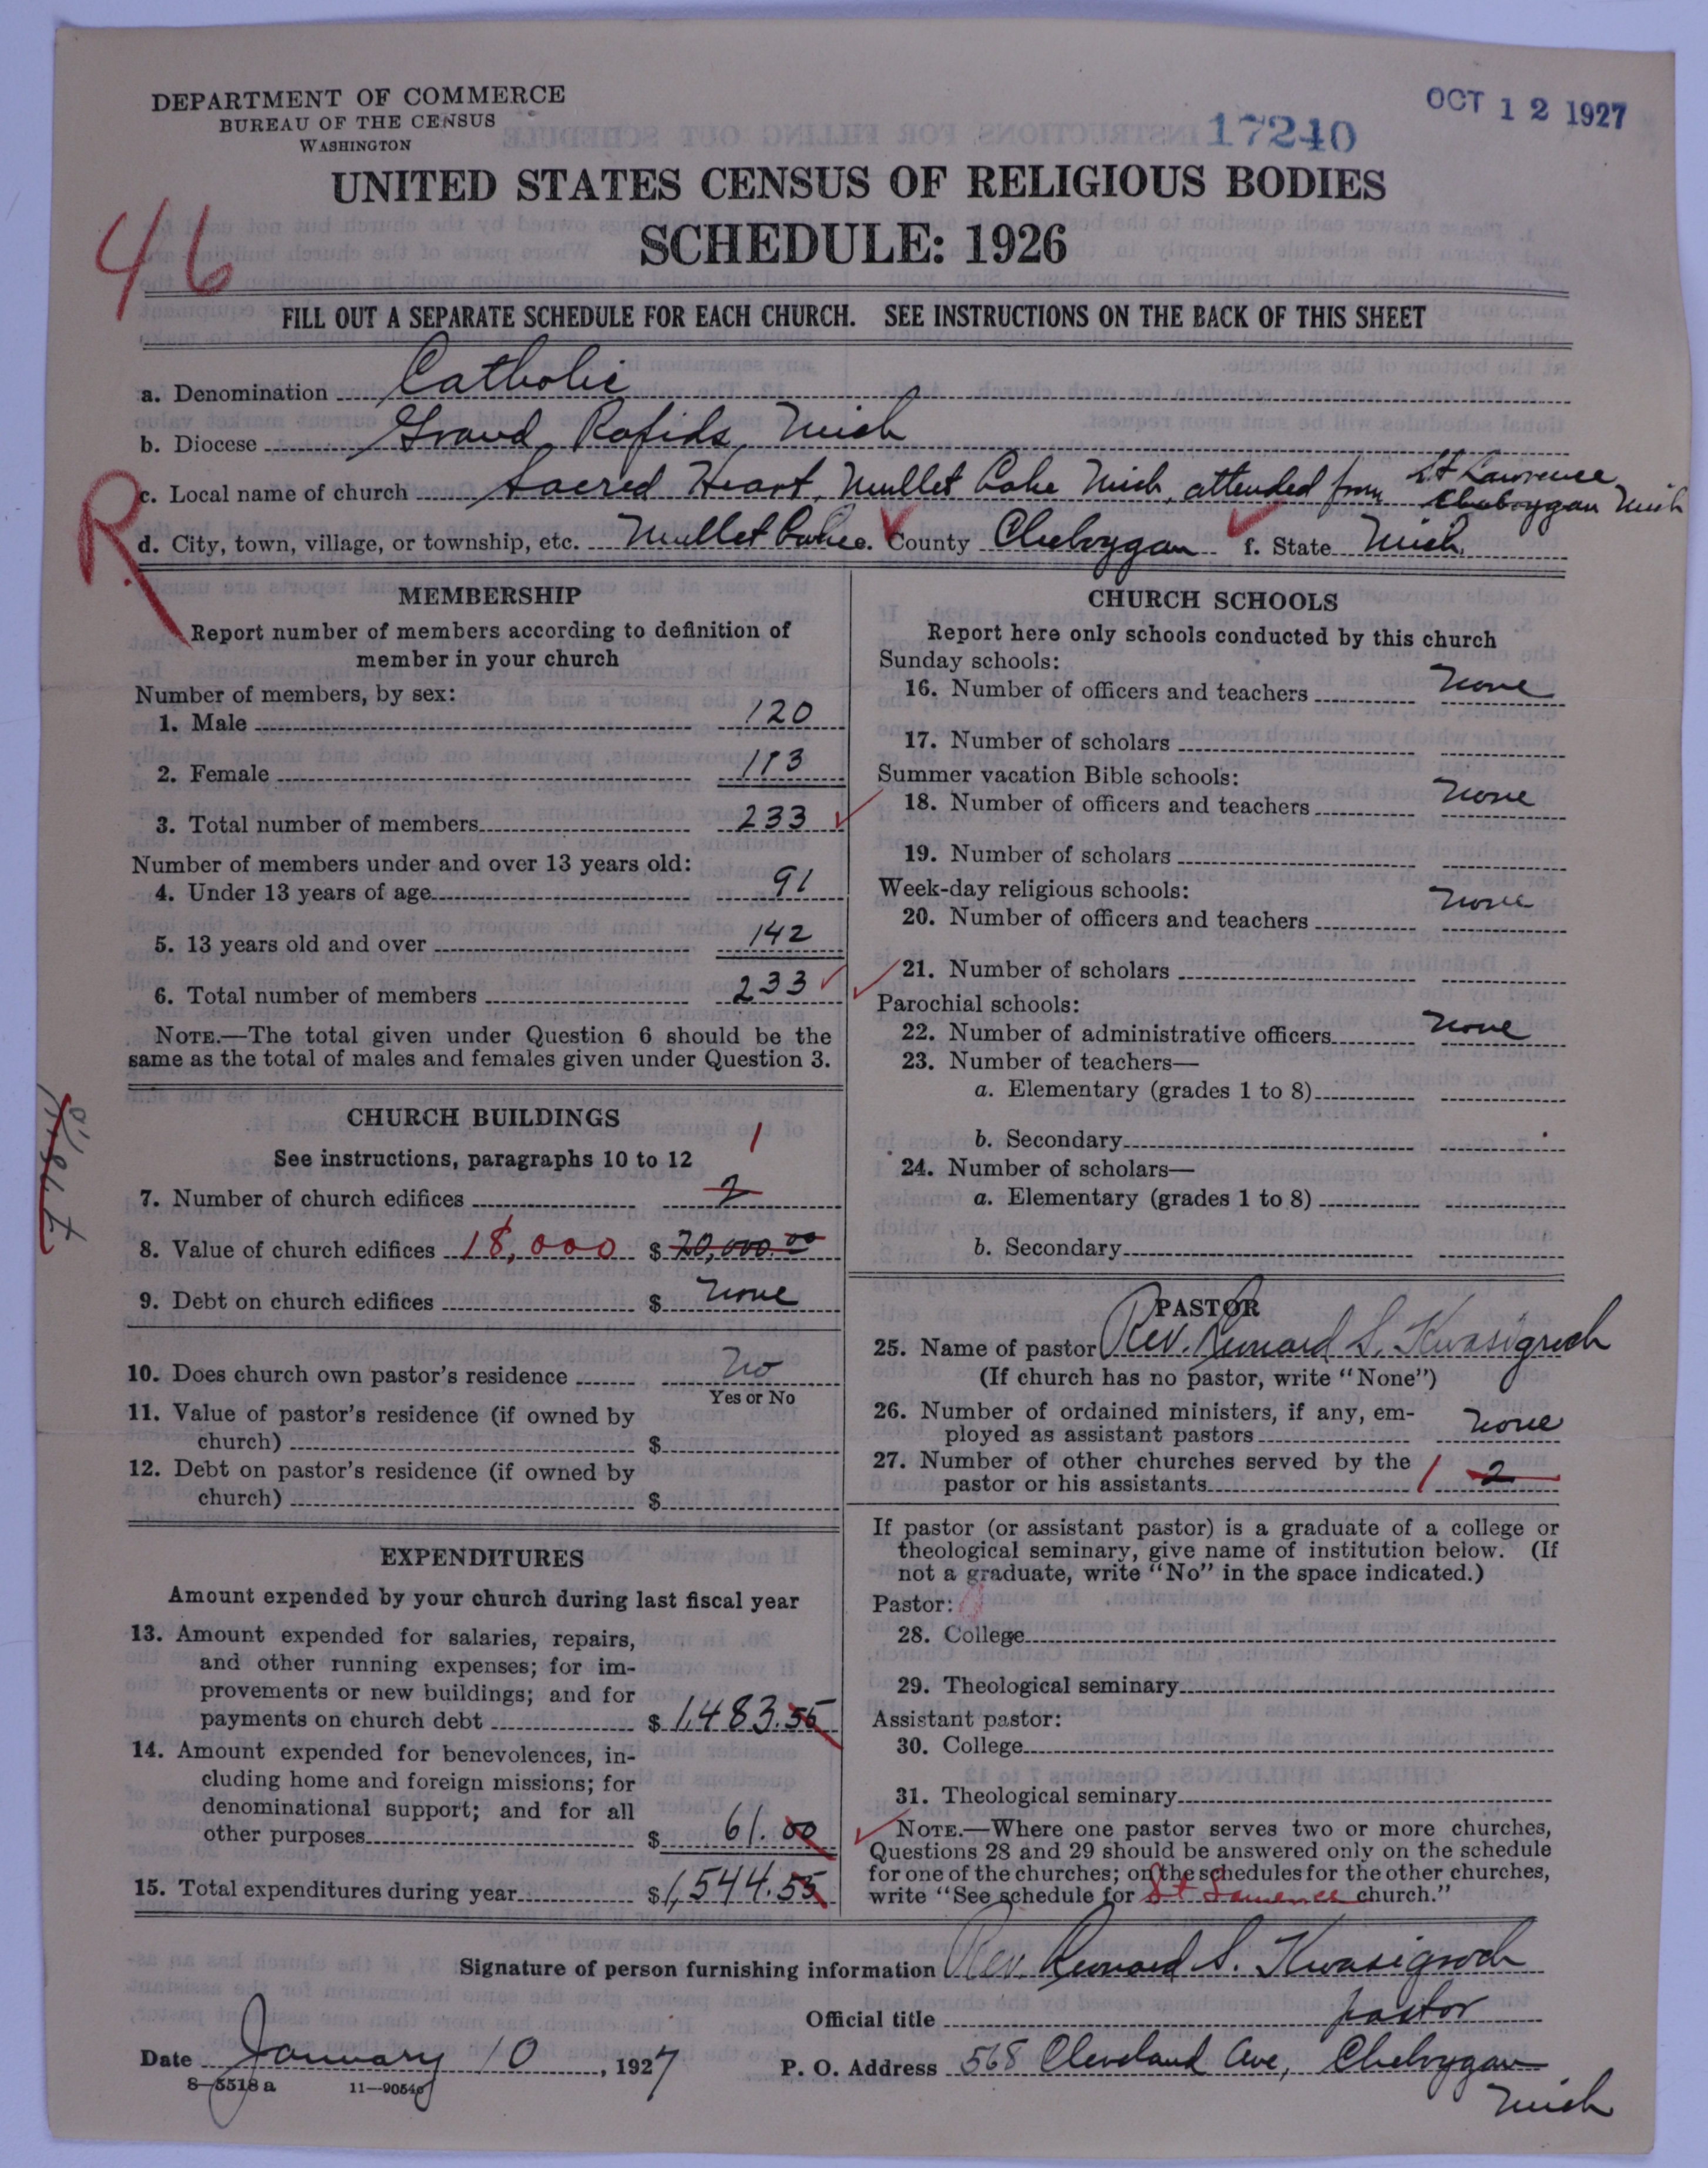 DEPARTMENT OF COMMERCE
BUREAU OF THE CENSUS
WASHINGTON
OCT 12 1927
17240
UNITED STATES CENSUS OF RELIGIOUS BODIES
SCHEDULE: 1926
46
FILL OUT A SEPARATE SCHEDULE FOR EACH CHURCH. SEE INSTRUCTIONS ON THE BACK OF THIS SHEET
a. Denomination Catholic
b. Diocese Grand Rapids, Mich
R
c. Local name of church Sacred Heart, Mullet Lake Mich, attended from St Lawrence Cheboygan Mich
d. City, town, village, or township, etc. Mullet Lake e. County Cheboygan f. State Mich.
MEMBERSHIP
Report number of members according to definition of
member in your church
Number of members, by sex:
1. Male 120
2. Female 113
3. Total number of members 233
Number of members under and over 13 years old:
4. Under 13 years of age 91
5. 13 years old and over 142
6. Total number of members 233
NOTE.—The total given under Question 6 should be the
same as the total of males and females given under Question 3.
CHURCH BUILDINGS
See instructions, paragraphs 10 to 12
1
7. Number of church edifices 2
8. Value of church edifices 18,000 $ 20,000.00
9. Debt on church edifices $ none
10. Does church own pastor's residence No
Yes or No
11. Value of pastor's residence (if owned by
church) $
12. Debt on pastor's residence (if owned by
church) $
EXPENDITURES
Amount expended by your church during last fiscal year
13. Amount expended for salaries, repairs,
and other running expenses; for im-
provements or new buildings; and for
payments on church debt $ 1,483.55
14. Amount expended for benevolences, in-
cluding home and foreign missions; for
denominational support; and for all
other purposes $ 61.00
15. Total expenditures during year $ 1,544.55
CHURCH SCHOOLS
Report here only schools conducted by this church
Sunday schools:
16. Number of officers and teachers none
17. Number of scholars
Summer vacation Bible schools:
18. Number of officers and teachers none
19. Number of scholars
Week-day religious schools:
20. Number of officers and teachers none
21. Number of scholars
Parochial schools:
22. Number of administrative officers none
23. Number of teachers—
a. Elementary (grades 1 to 8)
b. Secondary
24. Number of scholars—
a. Elementary (grades 1 to 8)
b. Secondary
PASTOR
25. Name of pastor Rev. Bernard S. Kwasigroch
(If church has no pastor, write "None")
26. Number of ordained ministers, if any, em-
ployed as assistant pastors none
27. Number of other churches served by the
pastor or his assistants 1 2
If pastor (or assistant pastor) is a graduate of a college or
theological seminary, give name of institution below. (If
not a graduate, write "No" in the space indicated.)
Pastor:
28. College
29. Theological seminary
Assistant pastor:
30. College
31. Theological seminary
NOTE.—Where one pastor serves two or more churches,
Questions 28 and 29 should be answered only on the schedule
for one of the churches; on the schedules for the other churches,
write "See schedule for St Lawrence church."
Signature of person furnishing information Rev. Bernard S. Kwasigroch
Official title pastor
Date January 10, 1927
P. O. Address 568 Cleveland Ave, Cheboygan
Mich
8—5518 a 11—9054